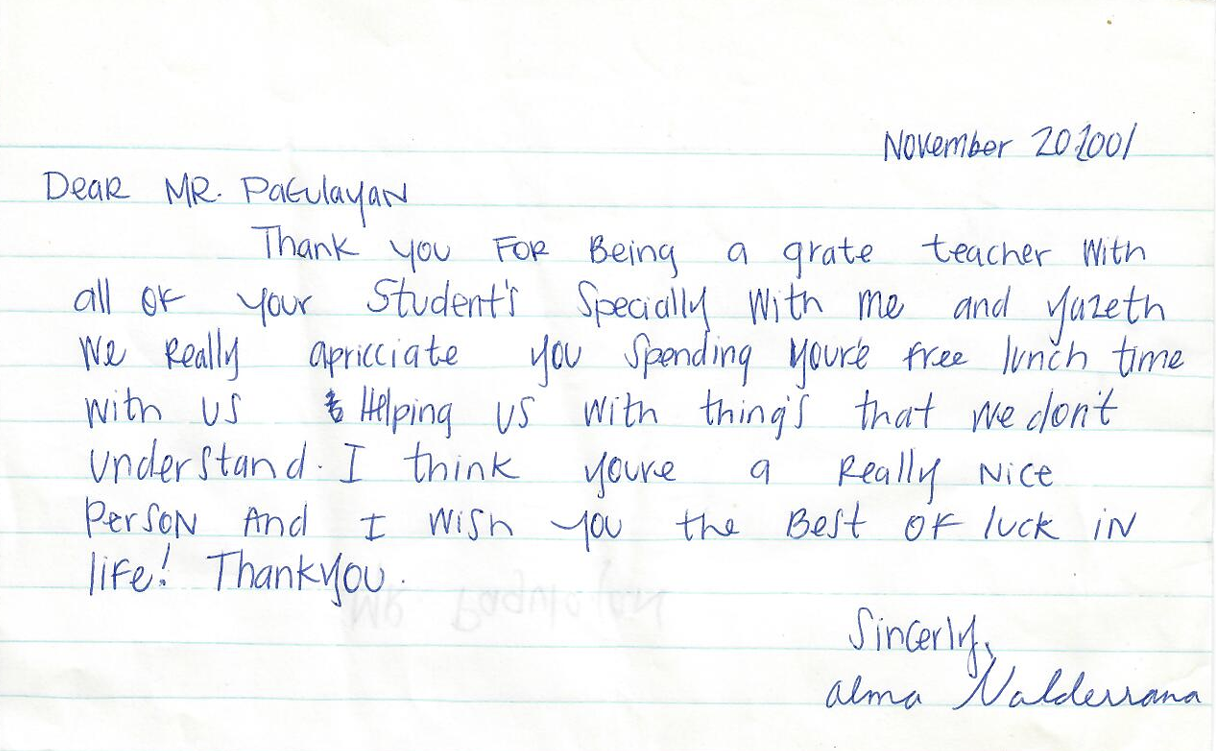 November 20 2001
Dear MR. Pagulayan
Thank you FOR Being a grate teacher With
all OF your Student's Specially With me and Yazeth
We Really apricciate you Spending youre free lunch time
With us & Helping us With thing's that We don't
understand. I think youre a Really Nice
Person And I Wish you the Best OF luck in
life! Thankyou.
Sincerly,
alma Valderrana